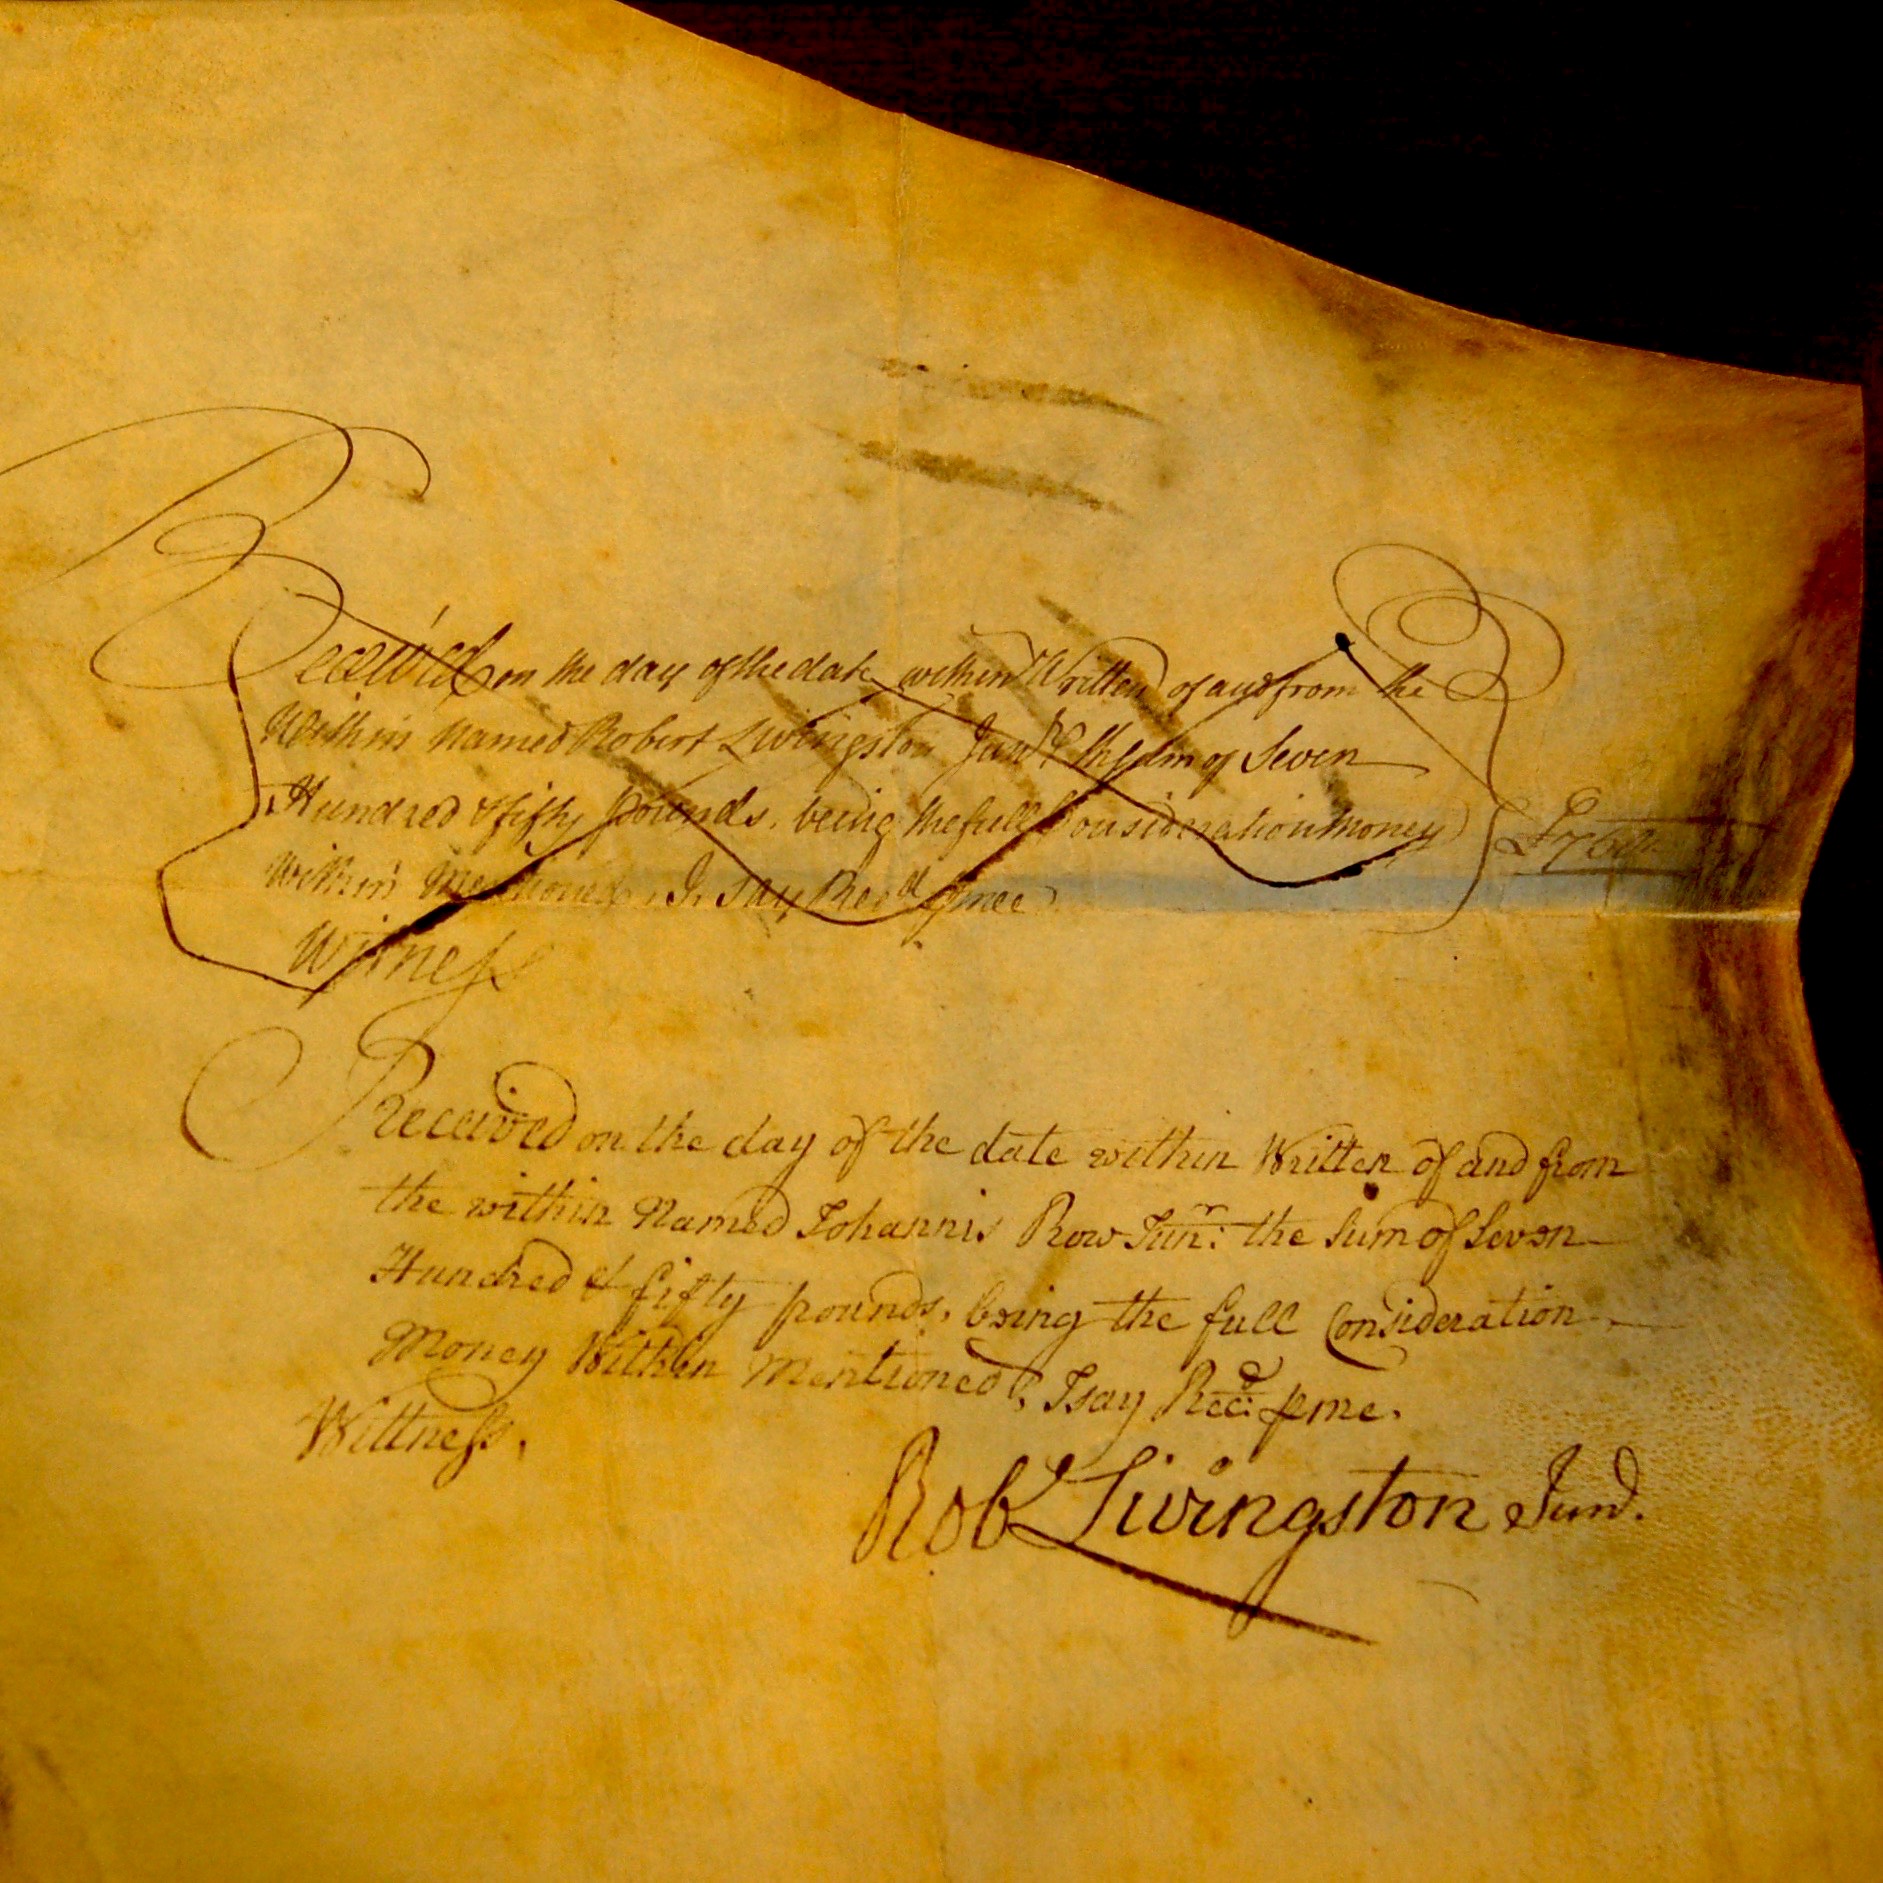 Receiv'd on the day of the date within Written of and from the
Within named Robert Livingston Junr. the Sum of Seven
Hundred & fifty pounds, being the full Consideration money
Within Mentioned, I, say Recd. ⅌ mee
Witness
Received on the day of the date within Written of and from
the within Named Johannis Row Junr: the Sum of Seven
Hundred & fifty pounds, being the full Consideration
Money Within Mentioned, I say Recd: ⅌ me.
Wittness,
Robt Livingston Junr.